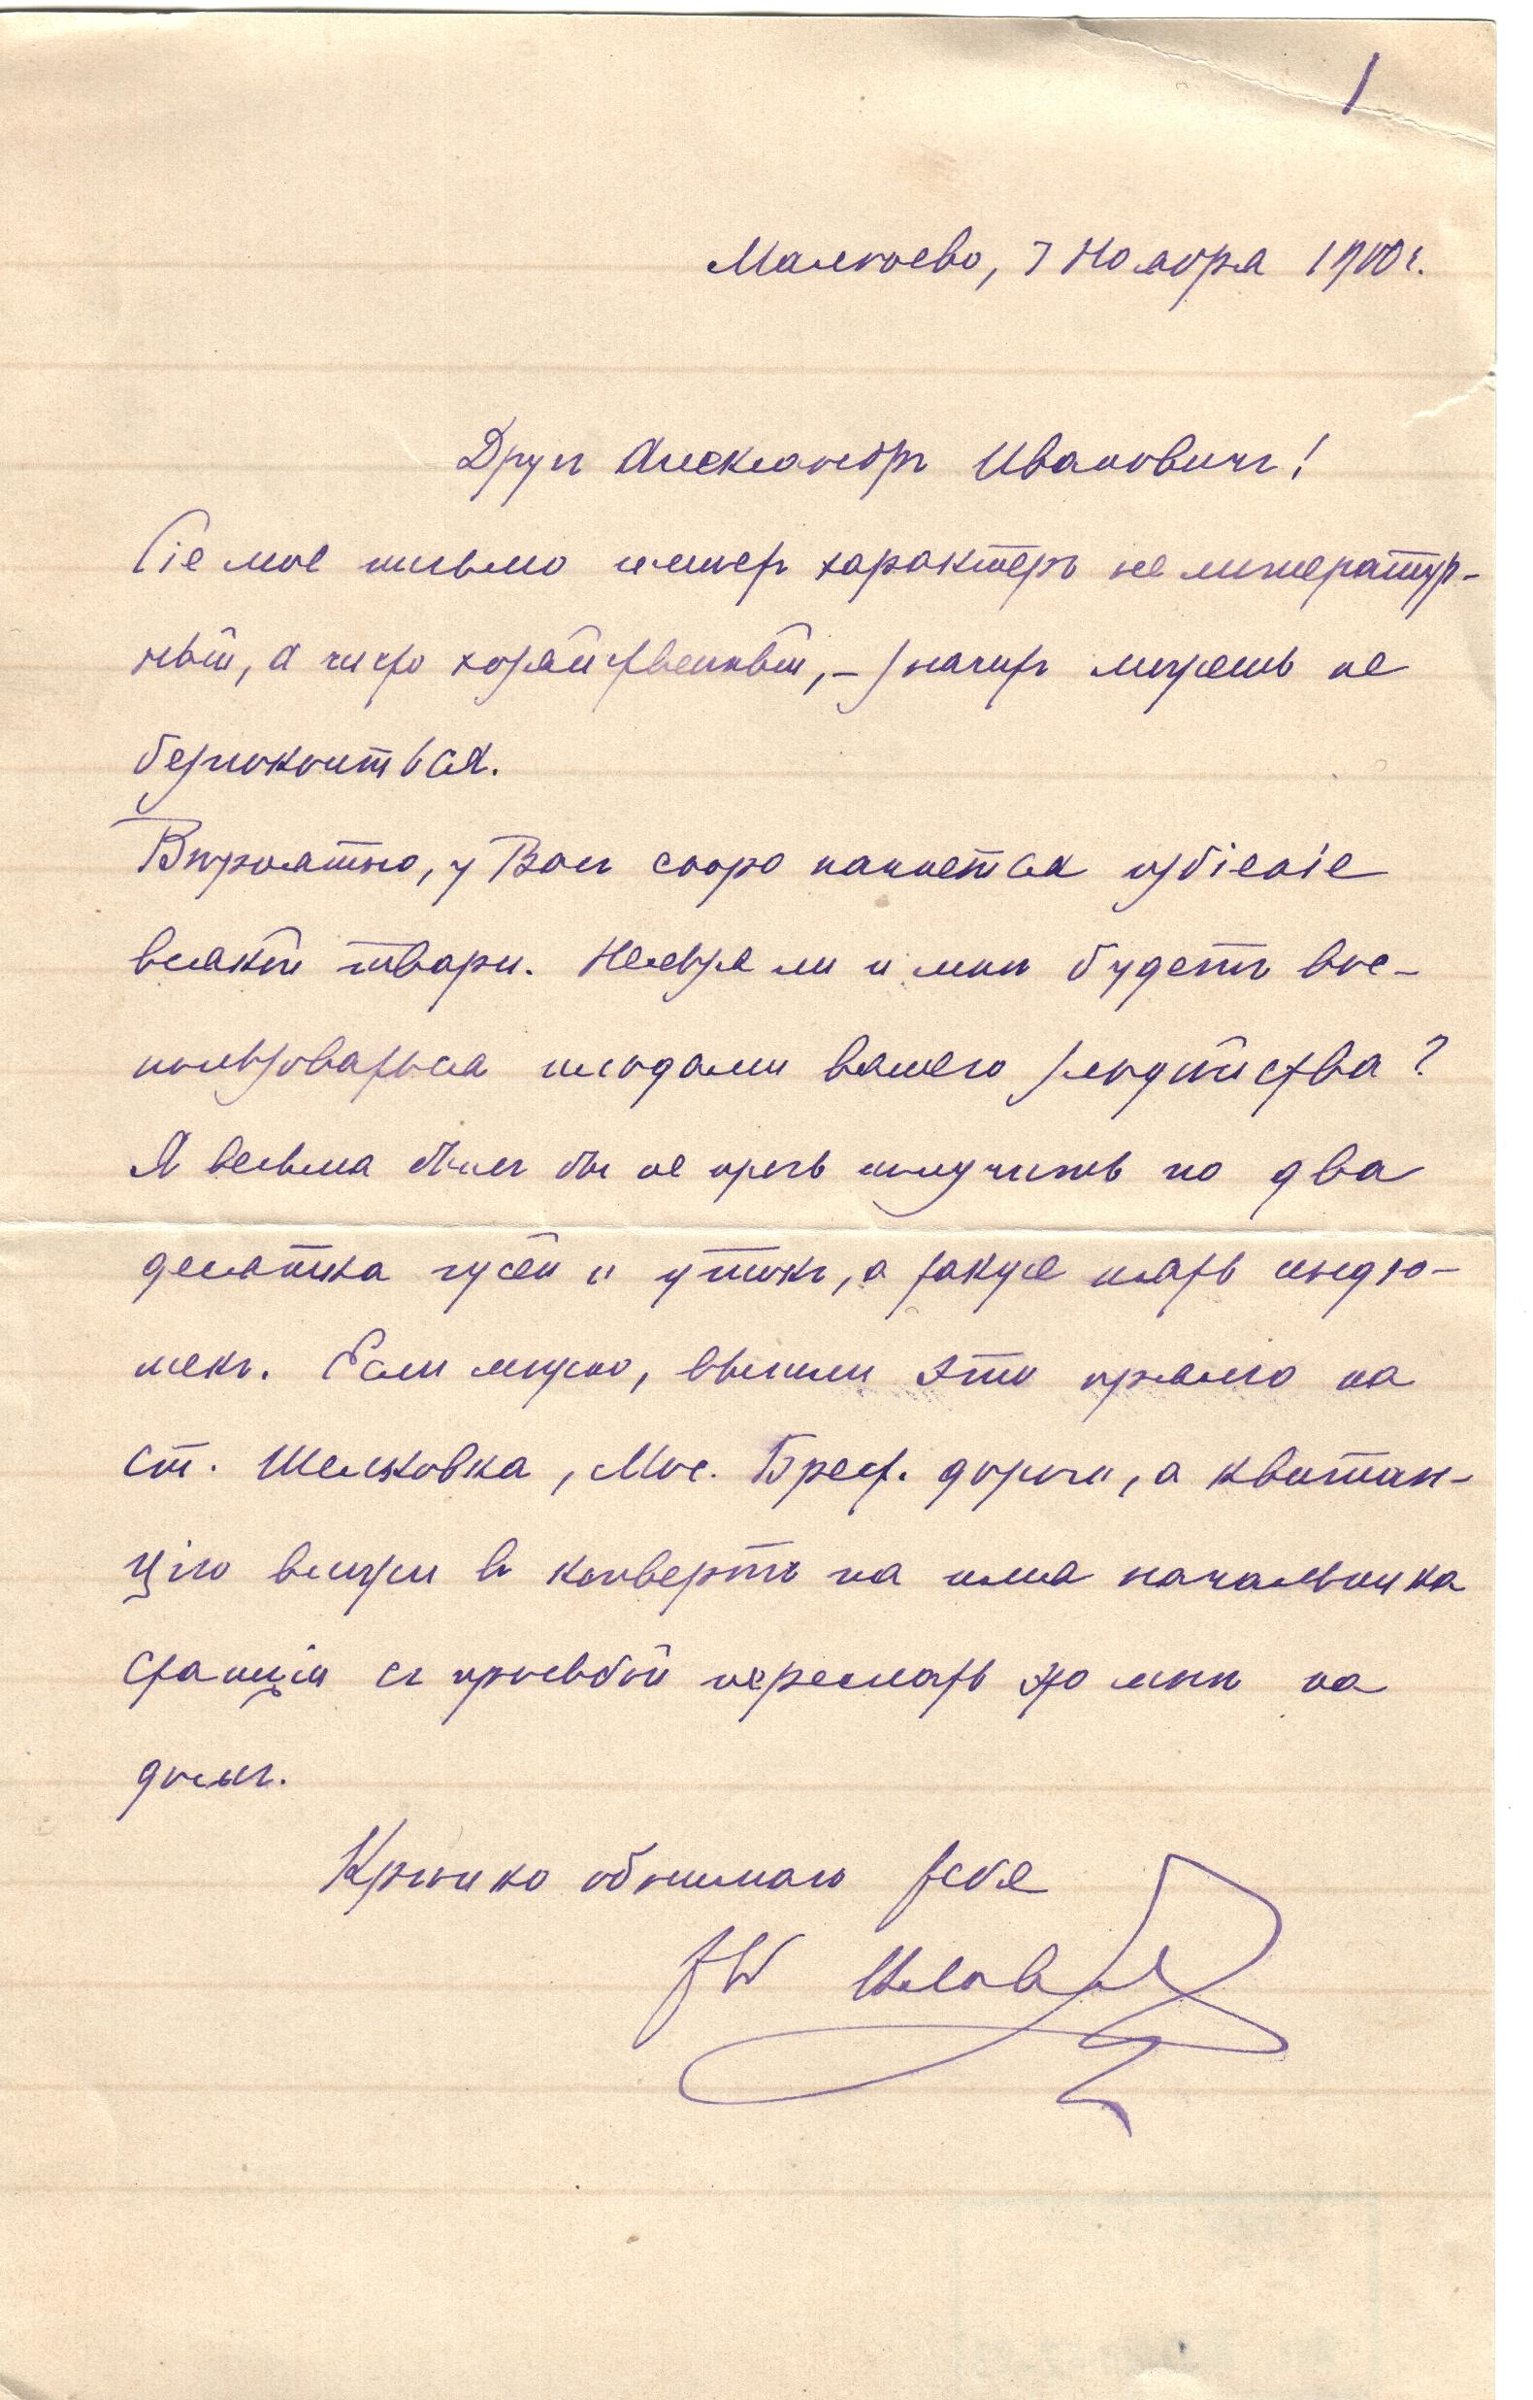 1
Малеево, 7 Ноября 1900 г.
Другъ Александръ Ивановичъ!
Сіе мое письмо имеетъ характеръ не литератур-
ный, а чисто хозяйственный, – значитъ можешь не
безпокоиться.
Вѣроятно, у Васъ скоро начнется избіеніе
всякой твари. Нельзя ли и мнѣ будетъ вос-
пользоваться плодами вашего злодѣйства?
Я весьма былъ бы не прочь получить по два
десятка гусей и утокъ, а также пять индю-
шекъ. Если можно, вышли это прямо на
ст. Шелковка, Мос. Брест. дороги, а квитан-
цію вложи въ конвертъ на имя начальника
станціи съ просьбой переслать это мнѣ на
домъ.
Крѣпко обнимаю тебя